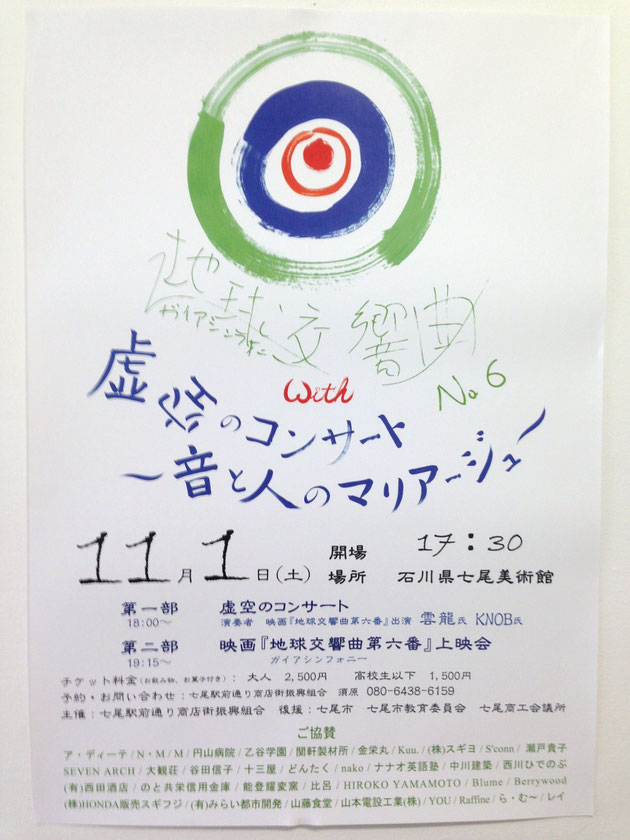 地球交響曲
ガイアシンフォニー
No 6
With
虚空のコンサート
～音と人のマリアージュ～
11月1日(土) 開場 17:30
場所 石川県七尾美術館
第一部 虚空のコンサート
18:00～ 演奏者 映画『地球交響曲第六番』出演 雲龍氏 KNOB氏
第二部 映画『地球交響曲第六番』上映会
19:15～ ガイアシンフォニー
チケット料金(お飲み物、お菓子付き): 大人 2,500円 高校生以下 1,500円
予約・お問い合わせ:七尾駅前通り商店街振興組合 須原 080-6438-6159
主催:七尾駅前通り商店街振興組合 後援:七尾市 七尾市教育委員会 七尾商工会議所
ご協賛
ア・ディーテ / N・M / M / 円山病院 / 乙谷学園 / 関軒製材所 / 金栄丸 / Kuu. / (株)スギヨ / S'conn / 瀬戸貴子
SEVEN ARCH / 大観荘 / 谷田信子 / 十三屋 / どんたく / nako / ナナオ英語塾 / 中川建築 / 西川ひでのぶ
(有)西田酒店 / のと共栄信用金庫 / 能登耀変窯 / 比呂 / HIROKO YAMAMOTO / Blume / Berrywood
(株)HONDA販売スギフジ / (有)みらい都市開発 / 山藤食堂 / 山本電設工業(株) / YOU / Raffine / ら・む～ / レイ